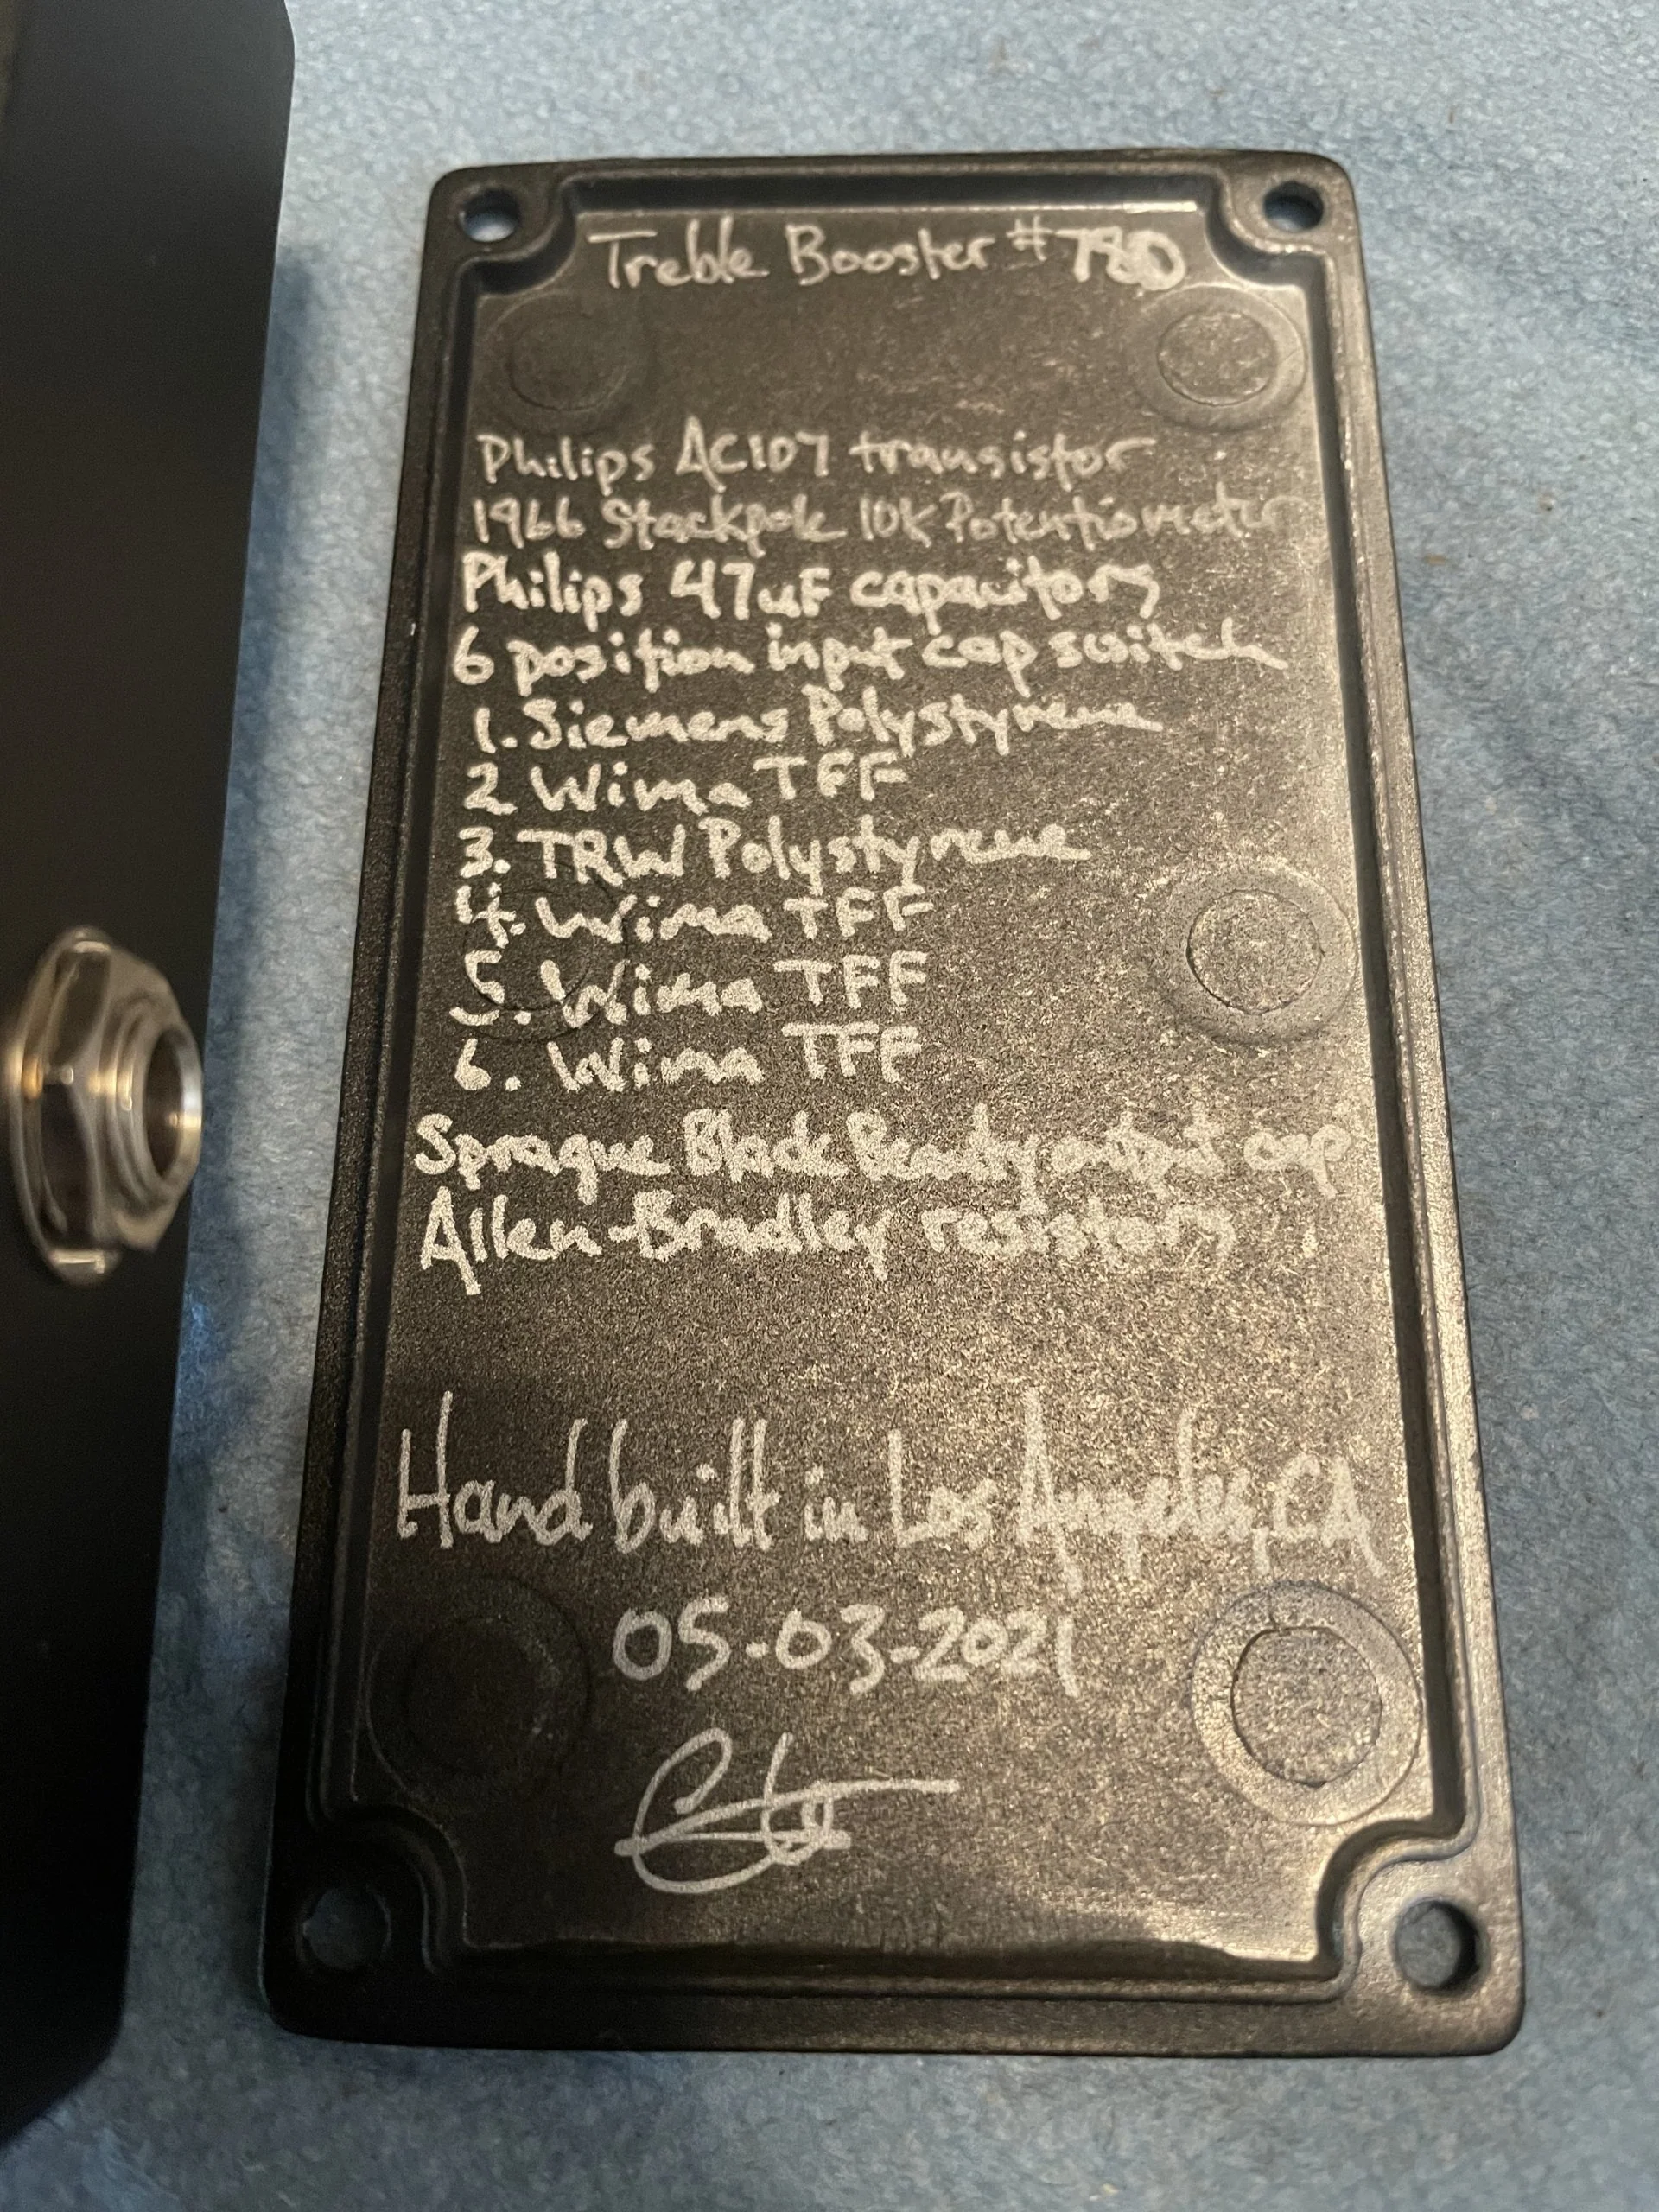 Treble Booster #780
Philips AC107 transistor
1966 Stackpole 10K Potentiometer
Philips 47uF capacitors
6 position input cap switch
1. Siemens Polystyrene
2 Wima TFF
3. TRW Polystyrene
4. Wima TFF
5. Wima TFF
6. Wima TFF
Sprague Black Beauty output cap
Allen-Bradley resistors
Hand built in Los Angeles, CA
05-03-2021